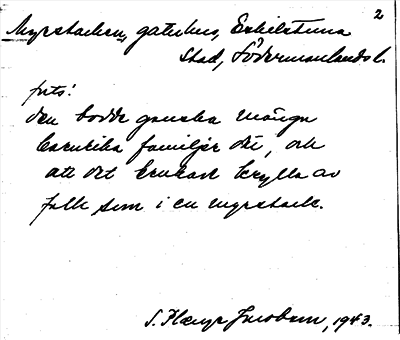 2
Myrstacken, gatuhus, Eskilstuna
Stad, Södermanlands l.
forts:
den bodde ganska många
barnrika familjer där, och
att det brukade krylla av
folk som i en myrstack.
S. Jacobson, 1943.